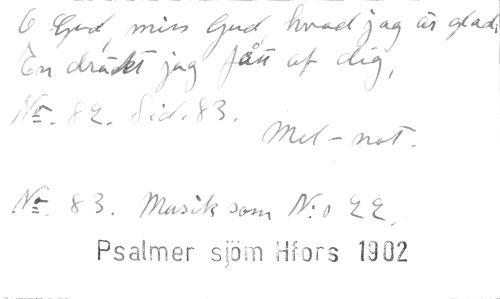 O Gud, min Gud, hvad jag är glad,
En dräkt jag fått af dig,
No. 82. Sid. 83.
Mel-not.
No. 83. Musik som N:o 22.
Psalmer sjöm Hfors 1902